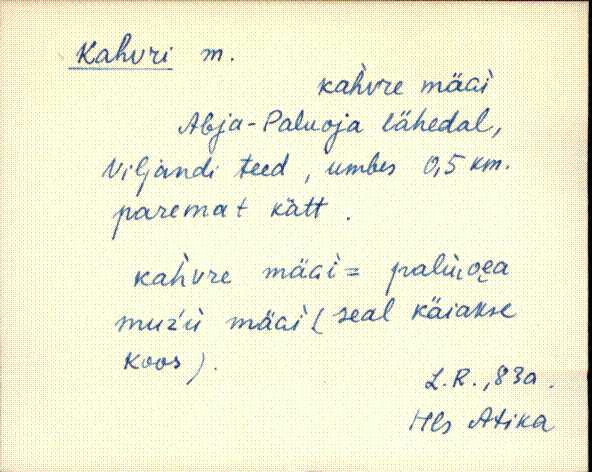 Kahvri m.
kah̀vre mäɢì
Abja-Paluoja lähedal,
Viljandi teed, umbes 0,5 km.
paremat kätt.
kah̀vre mäɢì = palùoea
muz'ù mäɢì (seal käiakse
koos).
L.R., 83a.
Hls Atika